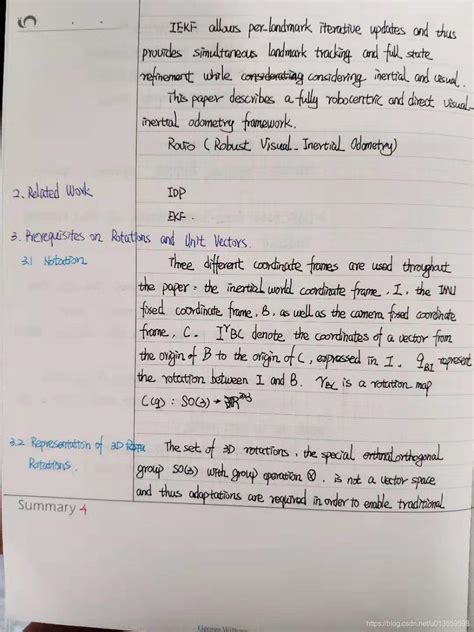 IEKF allows per-landmark iterative updates and thus
provides simultaneous landmark tracking and full state
refinement while considering inertial and visual.
This paper describes a fully robocentric and direct visual-
inertial odometry framework.
Rovio (Robust Visual-Inertial Odometry)
2. Related Work
IDP
EKF.
3. Prerequisites on Rotations and Unit Vectors.
3.1 Notation
Three different coordinate frames are used throughout
the paper: the inertial world coordinate frame, I, the IMU
fixed coordinate frame, B, as well as the camera fixed coordinate
frame, C. IrBC denote the coordinates of a vector from
the origin of B to the origin of C, expressed in I. qBI represent
the rotation between I and B. rBC is a rotation map
C(q): SO(3) →
3.2 Representation of 3D
Rotations.
The set of 3D rotations, the special orthogonal
group SO(3) with group operation ⊗, is not a vector space
and thus adaptations are required in order to enable traditional
Summary 4
https://blog.csdn.net/u013659598